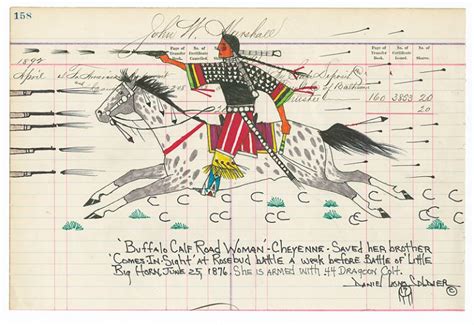 158
John W. Marshall
Page of Transfer Book. No. of Certificate Cancelled. No. of Shares. Page of Transfer Book. No. of Certificate Issued. No. of Shares.
1892
April
160 3853 20
20
"Buffalo Calf Road Woman - Cheyenne - Saved her brother
'Comes In Sight' at Rosebud battle a week before Battle of Little
Big Horn, June 25, 1876. She is armed with .44 Dragoon Colt.
Daniel Long Soldier ©